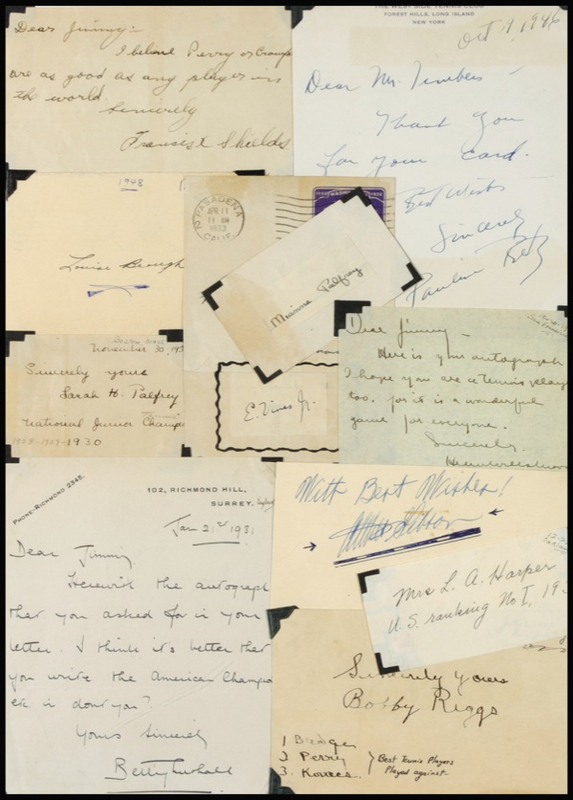 Dear Jimmy:-
I believe Perry or Crawford
are as good as any player in
the world.
Sincerely
Francis X Shields
THE WEST SIDE TENNIS CLUB
FOREST HILLS, LONG ISLAND
NEW YORK
Oct 1, 1946
Dear Mr.
Thank you
for your card.
Best Wishes
Sincerely
Pauline Betz
1948
Louise Brough
PASADENA
APR 11
11 AM
1933
CALIF.
Marianna Palfrey
November 30, 193
Sincerely yours
Sarah H. Palfrey
National Junior Champ
1928-1929-1930
E. Vines Jr.
Dear Jimmy -
Here is your autograph
I hope you are a tennis player
too, for it is a wonderful
game for everyone.
Sincerely
PHONE-RICHMOND 2345.
102, RICHMOND HILL,
SURREY.
Jan 21st 1931
Dear Jimmy
Herewith the autograph
that you asked for in your
letter. I think it's better that
you write the American Champions
etc. is don't you?
Yours Sincerely
Betty Nuthall
With Best Wishes!
Althea Gibson
Mrs L. A. Harper
U.S. ranking No I, 19
Sincerely yours
Bobby Riggs
1 Budge
2 Perry
3. Kovacs
Best Tennis Players
Played against-